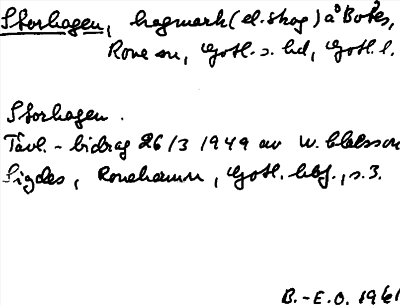 Storhagen, hagmark (el. skog) å Botes,
Rone sn, Gotl. s. hd, Gotl. l.
Storhagen.
Tävl.-bidrag 26/3 1949 av W. Claesson
Sigdes, Ronehamn, Gotl. , s. 3.
B.-E.O. 1961